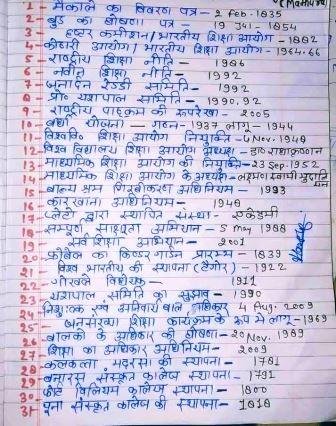 1- मैकाले का विवरण पत्र - 2 Feb - 1835
2- वुड का घोषणा पत्र - 19 जुलाई - 1854
3- हण्टर कमीशन/भारतीय शिक्षा आयोग - 1882
4- कोठारी आयोग/भारतीय शिक्षा आयोग - 1964.66
5- राष्ट्रीय शिक्षा नीति - 1986
6- नवीन शिक्षा नीति - 1992
7- जनार्दन रेड्डी समिति - 1992
8- प्रो० यशपाल समिति - 1990.92
9- राष्ट्रीय पाठ्यक्रम की रूपरेखा - 2005
10- वर्धा योजना - गठन - 1937 लागू - 1944
11- विश्ववि० शिक्षा आयोग नियुक्ति - 4 Nov. 1948
12- विश्व विद्यालय शिक्षा आयोग अध्यक्ष - डा० राधाकृष्णन
13- माध्यमिक शिक्षा आयोग की नियुक्ति - 23 Sep. 1952
14- माध्यमिक शिक्षा आयोग के अध्यक्ष - लक्ष्मण स्वामी मुदालियर
15- बाल्य श्रम गिरवीकरण अधिनियम - 1933
16- कारखाना अधिनियम - 1948
17- प्लेटो द्वारा स्थापित संस्था - एकेडमी
18- सम्पूर्ण साक्षरता अभियान - 5 May 1988
19- सर्व शिक्षा अभियान - 2001
20- फ्रोबेल का किण्डर गार्डन प्रारम्भ - 1839
21- विश्व भारतीय की स्थापना (टैगोर) - 1922
22- गोखले विधेयक - 1911
23- यशपाल समिति का सुझाव - 1990
24- निःशुल्क एवं अनिवार्य बाल अधिकार 4 Aug. 2009
25- जनसंख्या शिक्षा कार्यक्रम के रूप में लागू - 1969
26- बालको के अधिकार की घोषणा - 20 Nov. 1989
27- शिक्षा का अधिकार अधिनियम - 2009
28- कलकत्ता मदरसा की स्थापना - 1781
29- बनारस संस्कृत कालेज स्थापना - 1791
30- फोर्ट विलियम कालेज स्थापना - 1800
31- पूना संस्कृत कालेज की स्थापना - 1818